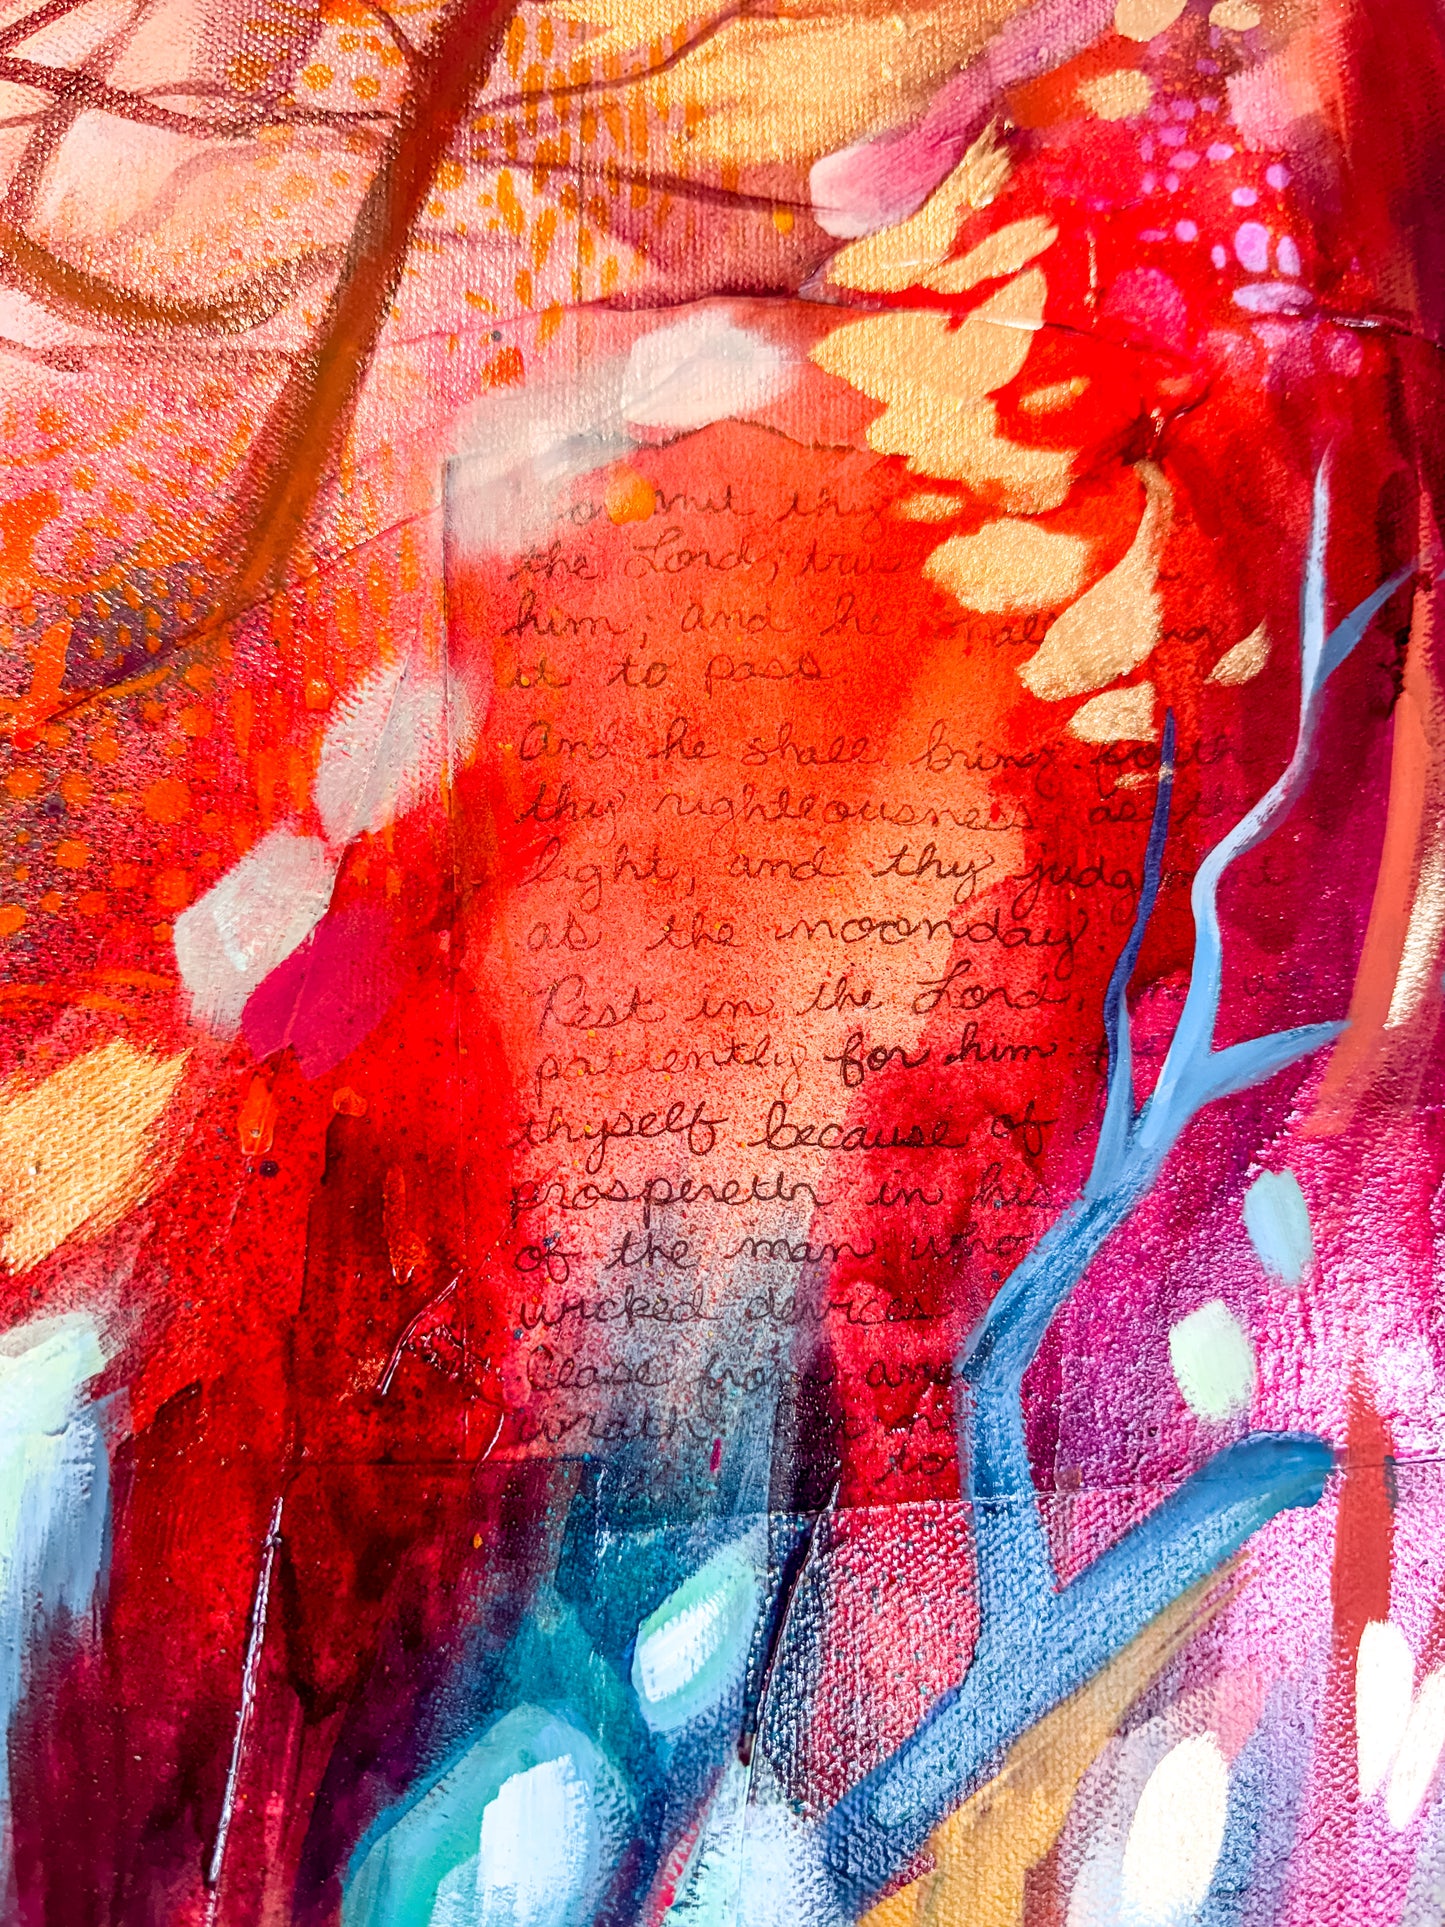 thy
the Lord; trus
him; and he shall bring
it to pass
And he shall bring forth
thy righteousness as the
light, and thy judgment
as the noonday.
Rest in the Lord, and wa
patiently for him: fre
thyself because of
prospereth in his
of the man who
wicked devices
Cease from ang
wrath:
to